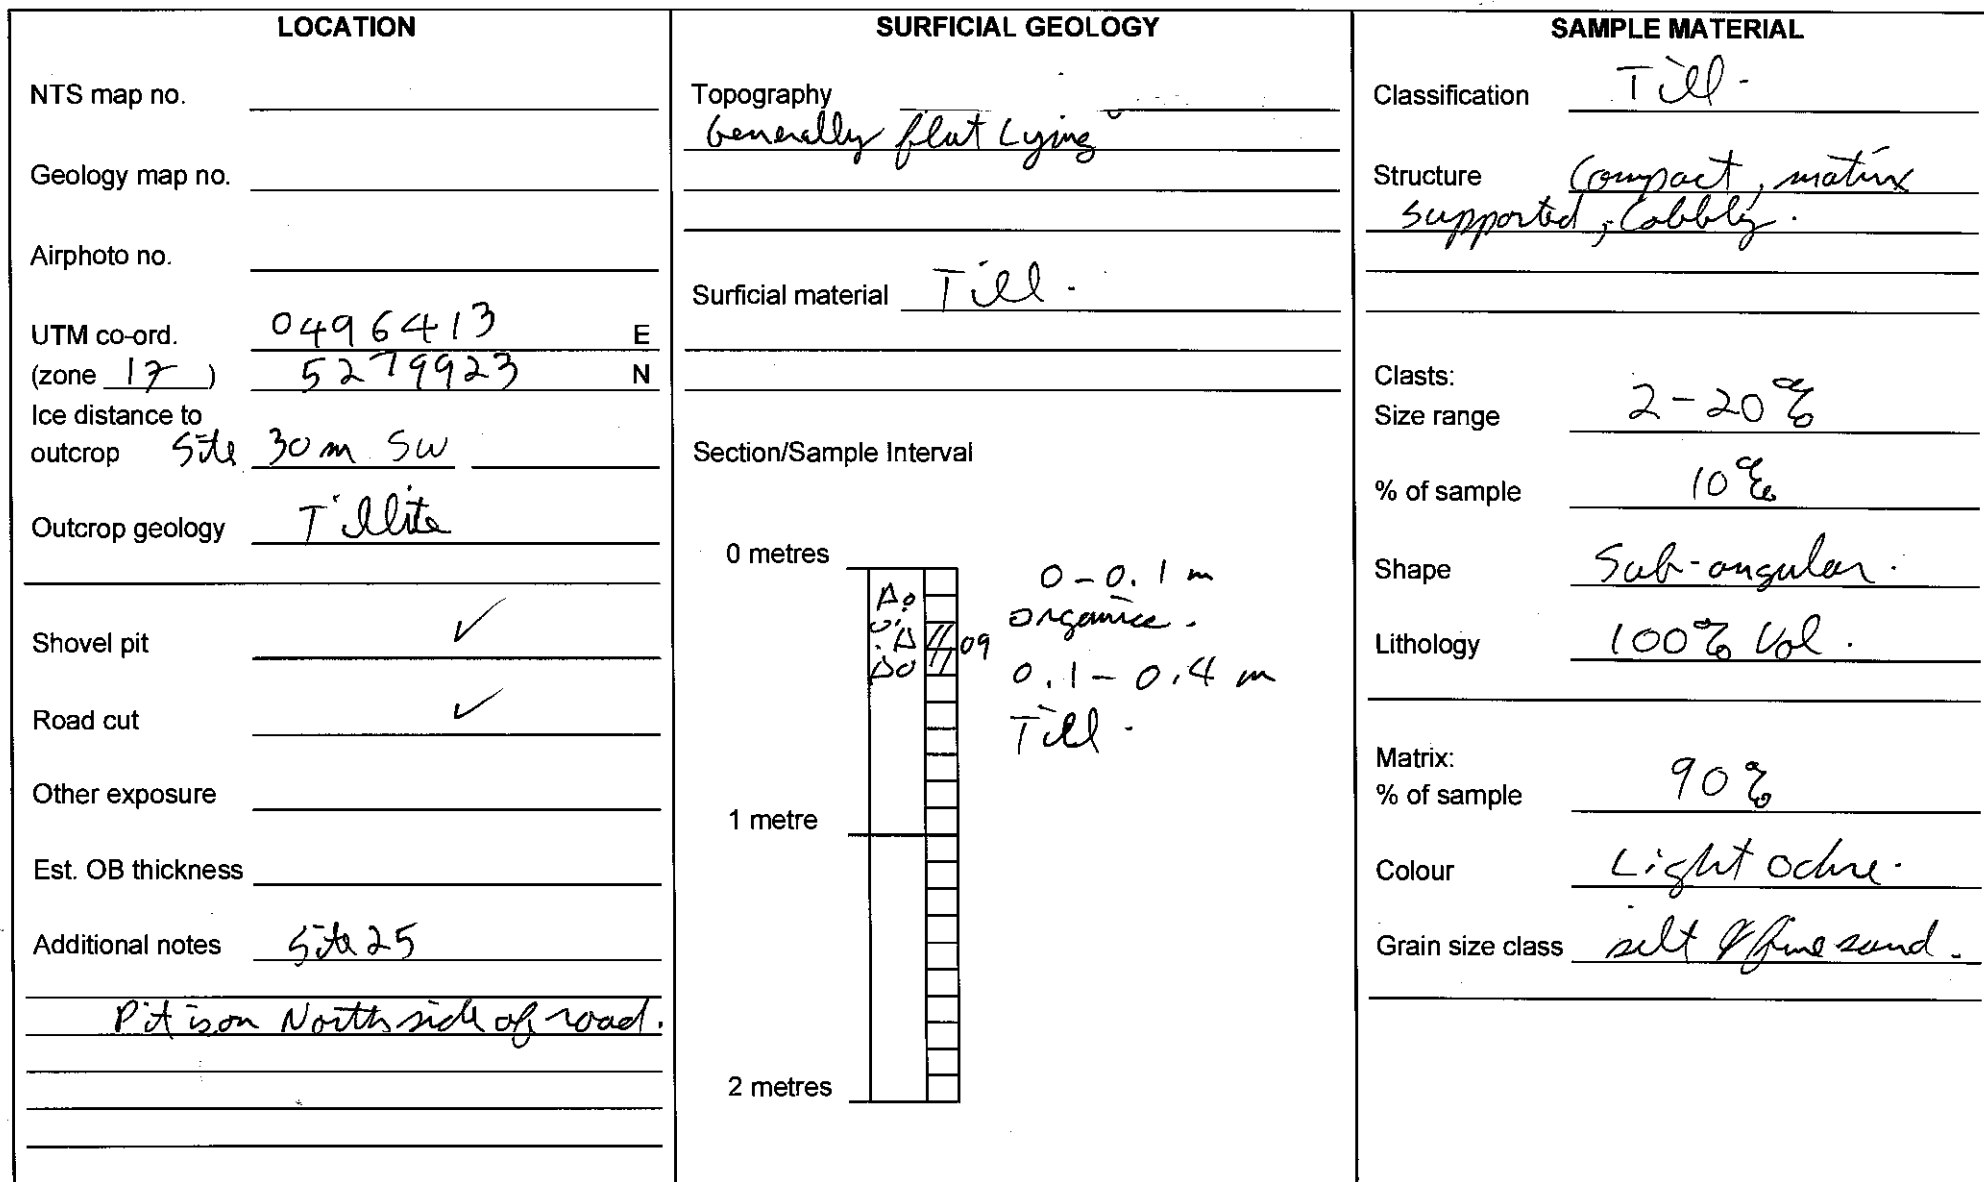 LOCATION
NTS map no.
Geology map no.
Airphoto no.
UTM co-ord. 0496413 E
(zone 17) 5279923 N
Ice distance to
outcrop Site 30 m SW
Outcrop geology Tillite
Shovel pit ✓
Road cut ✓
Other exposure
Est. OB thickness
Additional notes Site 25
Pit is on North side of road.
SURFICIAL GEOLOGY
Topography
Generally flat Lying
Surficial material Till.
Section/Sample Interval
0 metres
0-0.1 m
organics.
09
0.1-0.4 m
Till.
1 metre
2 metres
SAMPLE MATERIAL
Classification Till.
Structure Compact, matrix
supported, Cobbly.
Clasts:
Size range 2-20%
% of sample 10%
Shape Sub-angular.
Lithology 100% Vol.
Matrix:
% of sample 90%
Colour Light ochre.
Grain size class silt & fine sand.